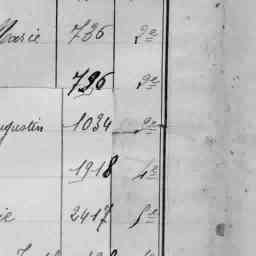 Marie 736 2e
796 9e
ugustin 1034 9e
1918 4e
ie 2417 5e